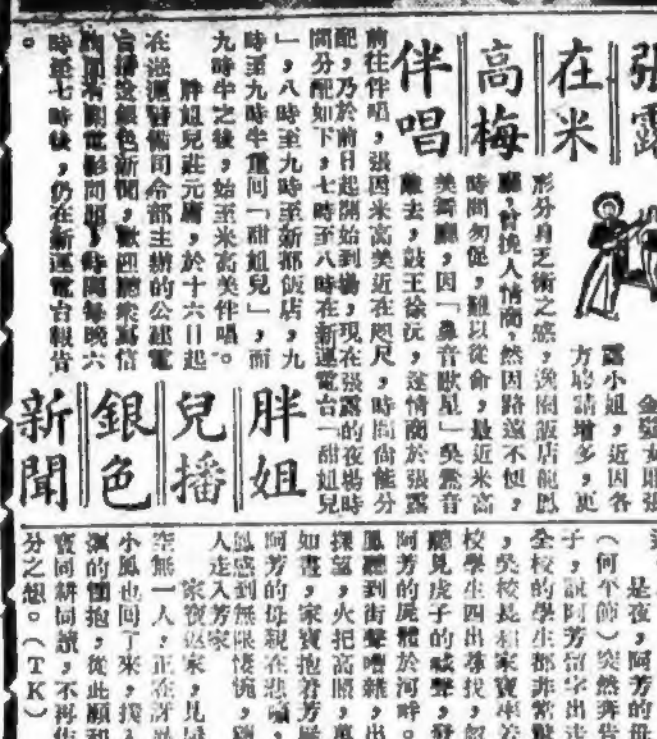 張露
在米
高梅
伴唱
露小姐,近因各
方聘請增多,更
形分身乏術之感,逸園飯店龍鳳
廳,曾挽人情商,然因路遠不便,
時間匆促,難以從命,最近米高
美舞廳,因「鼻音歌星」吳鶯音
離去,鼓王徐沅,遂情商於張露
前往伴唱,張因米高美近在咫尺,時間尚能分
配,乃於前日起開始到場,現在張露的夜場時
間分配如下,七時至八時在新運電台「甜姐兒
」,八時至九時至新都飯店,九
時至九時半重回「甜姐兒」,而
九時半之後,始至米高美伴唱。
胖姐
兒播
銀色
新聞
胖姐兒莊元庸,於十六日起
在淞滬警備司令部主辦的公建電
台播送銀色新聞,歡迎聽衆寫信
詢問有關電影問題,時間每晚六
時至七時後,仍在新運電台報告
。
是夜,阿芳的母
(何不飾)突然奔告
子,說阿芳留字出走
全校的學生都非常
,吳校長和家寶率
校學生四出尋找,
聽見虎子的喊聲,發
阿芳的屍體於河畔。
鳳聽到街聲嘈雜,出
探望,火把高照,
如晝,家寶抱着芳屍
阿芳的母親在悲
感到無限悽惋,
人走入芳家
家寶返家,見
空無一人,正在訝
小鳳也回了來,
的懷抱,從此願和
寶同耕同讀,不再作
分之想。(TK)